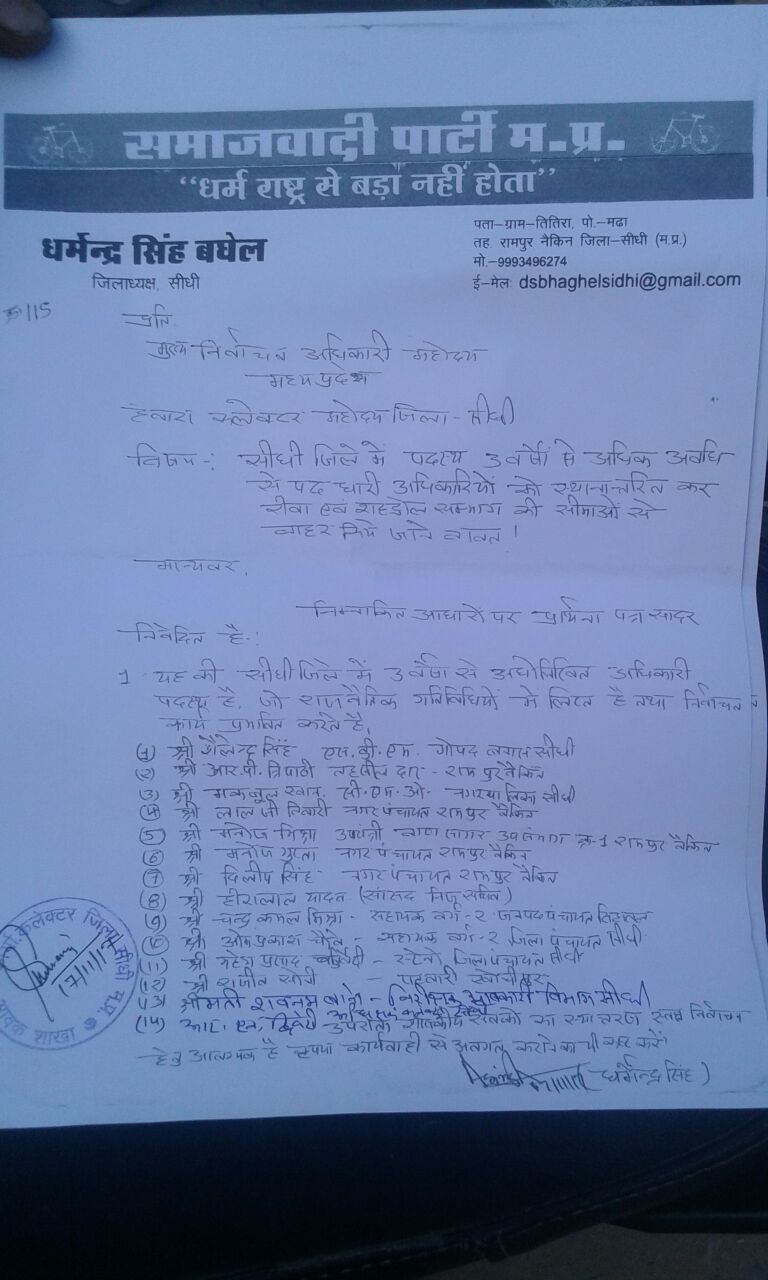 समाजवादी पार्टी म.प्र.
“धर्म राष्ट्र से बड़ा नहीं होता”
धर्मेन्द्र सिंह बघेल
जिलाध्यक्ष, सीधी
पता-ग्राम-तितिरा, पो.-मढा
तह. रामपुर नैकिन जिला-सीधी (म.प्र.)
मो.-9993496274
ई-मेलः dsbhaghelsidhi@gmail.com
क्र 115
प्रति,
मुख्य निर्वाचन अधिकारी महोदय
मध्य प्रदेश
द्वारा कलेक्टर महोदय जिला - सीधी
विषय -: सीधी जिले में पदस्थ 3 वर्षो से अधिक अवधि
से पद धारी अधिकारियों को स्थानान्तरित कर
रीवा एवं शहडोल सम्भाग की सीमाओं से
बाहर किये जाने बावत !
मान्यवर,
निम्नांकित आधारों पर प्रार्थना पत्र सादर
निवेदित है -:
1 यह की सीधी जिले में 3 वर्षो से अधोलिखित अधिकारी
पदस्थ है, जो राजनैतिक गतिविधियों में लिप्त है तथा निर्वाचन
कार्य प्रभावित करते है,
(1) श्री शैलेन्द्र सिंह एस.डी.एम. गोपद बनास सीधी
(2) श्री आर.पी. त्रिपाठी तहसीलदार - रामपुर नैकिन
(3) श्री मकबूल खान, सी.एम.ओ. नगरपालिका सीधी
(4) श्री लाल जी तिवारी नगर पंचायत रामपुर नैकिन
(5) श्री मनोज मिश्रा उपयंत्री बाण सागर उपसंभाग क्र-1 रामपुर नैकिन
(6) श्री मनोज गुप्ता नगर पंचायत रामपुर नैकिन
(7) श्री दिलीप सिंह नगर पंचायत रामपुर नैकिन
(8) श्री हीरालाल यादव (सांसद निज सचिव)
(9) श्री चन्द्र कमल मिश्रा - सहायक वर्ग - २ जनपद पंचायत सिहावल
(10) श्री ओमप्रकाश - सहायक वर्ग - २ जिला पंचायत सीधी
(11) श्री महेश प्रसाद - स्टेनो जिला पंचायत सीधी
(12) श्री राजीव सोनी - पटवारी
(13) श्रीमती शबनम बानो - निरीक्षक आबकारी विभाग सीधी
(14) आर. एन. द्विवेदी उपरोक्त शासकीय सेवकों का स्थानान्तरण स्वतंत्र निर्वाचन
हेतु आवश्यक है कृपया कार्यवाही से अवगत कराने का भी कष्ट करें।
(धर्मेन्द्र सिंह)
कलेक्टर जिला सीधी म.प्र.
आवक शाखा
17/11/17